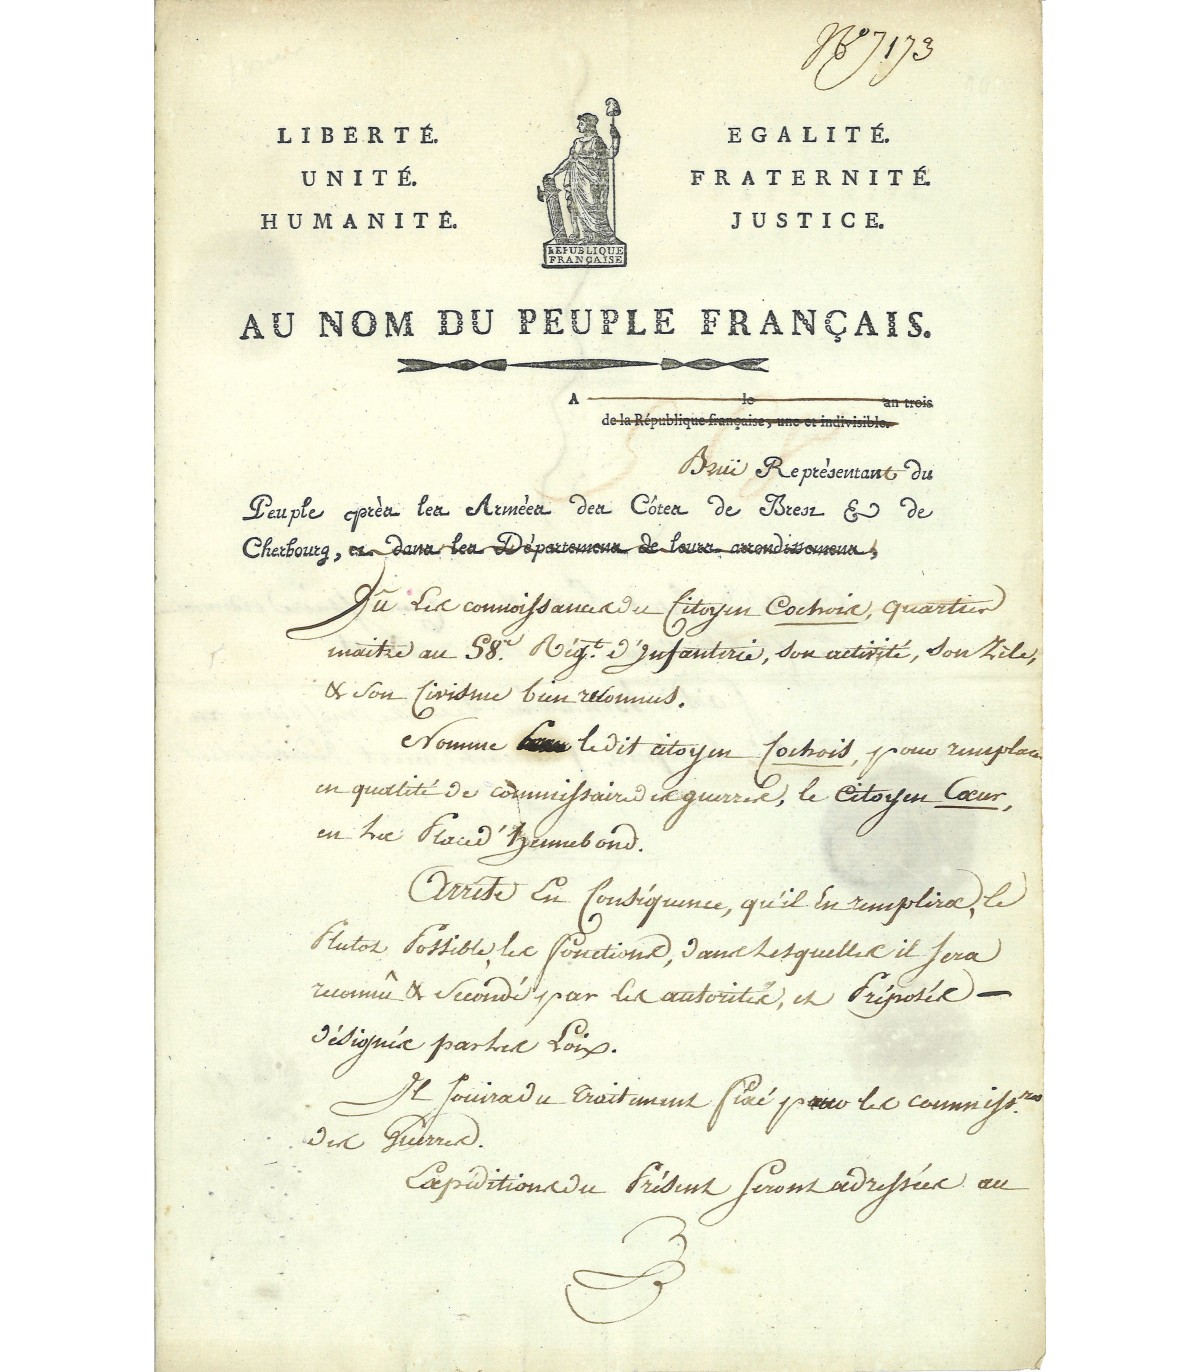 No 7173
LIBERTÉ. EGALITÉ.
UNITÉ. FRATERNITÉ.
HUMANITÉ. JUSTICE.
RÉPUBLIQUE
FRANÇAISE
AU NOM DU PEUPLE FRANÇAIS.
A le an trois
de la République française, une et indivisible.
Bruë Représentant du
Peuple près les Armées des Côtes de Brest & de
Cherbourg, et dans les Départemens de leurs arrondissemens,
Vu les connoissances du Citoyen Cochois, quartier
maitre au 58.e Régt. d'Infanterie, son activité, son Zèle,
& son Civisme bien reconnus.
Nomme ledit citoyen Cochois, pour remplacer
en qualité de commissaire des guerres, le Citoyen Cœur,
en la Place d'hennebond.
Arrête En Conséquence, qu'il En remplira, le
Plutot Possible, les fonctions, dans lesquelles il sera
reconnû & secondé par les autorités, et Préposés —
désignés par les Loix.
Il Jouira du traitement fixé pour les commissres
des Guerres.
Expéditions du Présent seront adressées au
B